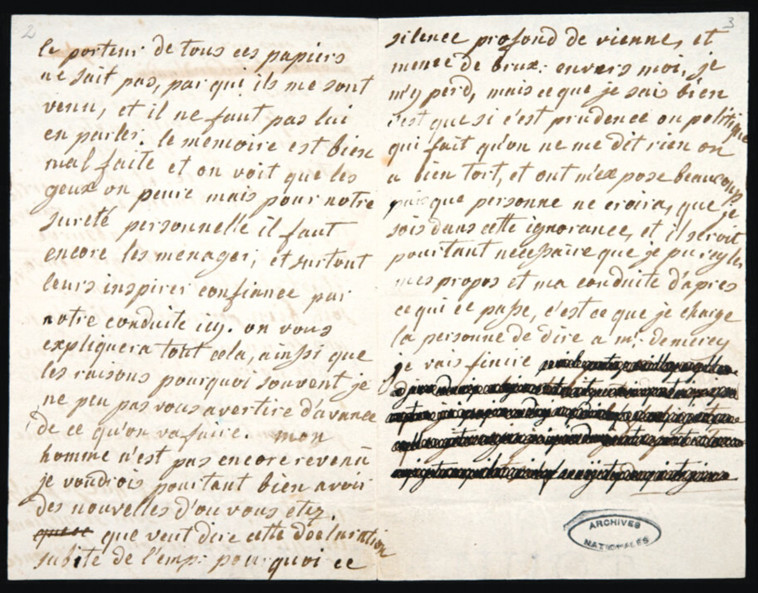 2
le porteur de tous ces papiers
ne sait pas, par qui ils me sont
venu, et il ne faut pas lui
en parler. le memoire est bien
mal faite et on voit que les
geux on peure mais pour notre
sureté personnelle il faut
encore les menager, et surtout
leurs inspirer confiance par
notre conduite icy. on vous
expliquera tout cela, ainsi que
les raisons pourquoi souvent je
ne peu pas vous avertire d'avance
de ce qu'on va faire. mon
homme n'est pas encore revenu
je voudrois pourtant bien avoir
des nouvelles d'ou vous etez.
que veut dire cette declaration
subite de l'emp: pourquoi ce
3
silence profond de vienne, et
meme de brux: envers moi, je
m'y perd, mais ce que je sais bien
c'est que si c'est prudence ou politique
qui fait qu'on ne me dit rien on
a bien tort, et ont m'expose beaucoup
que personne ne croira, que je
sois dans cette ignorance, et il seroit
pourtant necessaire que je pu regler
mes propos et ma conduite d'apres
ce qui ce passe, c'est ce que je charge
la personne de dire a mr. demercy
je vais finire
ARCHIVES
NATIONALES